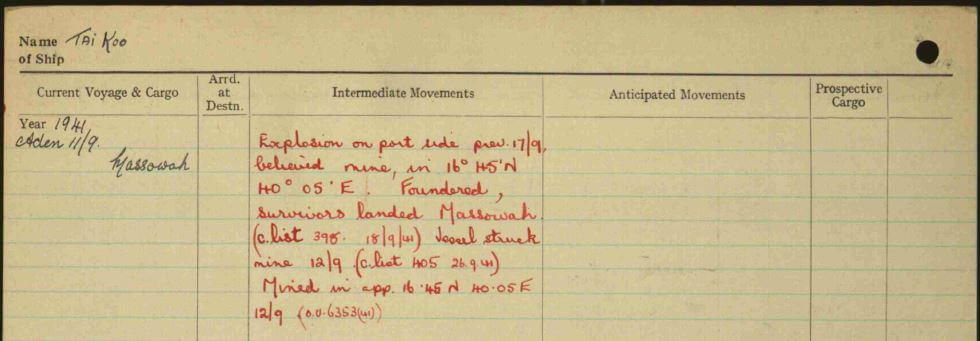 Name Tai Koo
of Ship
Current Voyage & Cargo
Arrd. at Destn.
Intermediate Movements
Anticipated Movements
Prospective Cargo
Year 1941
Aden 11/9.
Massowah
Explosion on port side prev. 17/9,
believed mine, in 16° 45'N
40° 05' E. Foundered,
survivors landed Massowah.
(c.list 398. 18/9/41) Vessel struck
mine 12/9. (c.list 405 26.9.41)
Mined in app. 16.45 N 40.05 E
12/9 (O.U.6353(41))